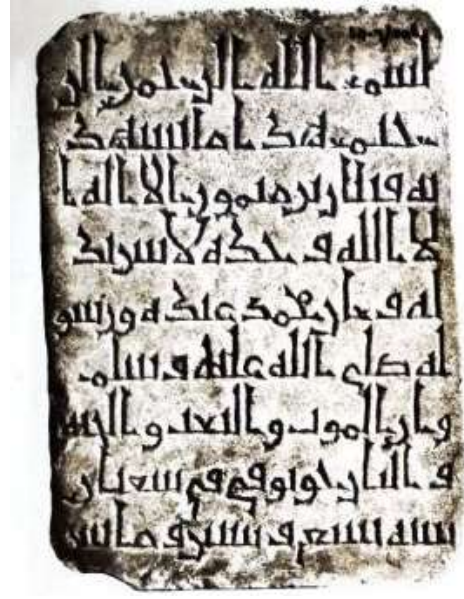 بسم الله الرحمن الر
حيم هذا ما يشهد
به بن ميمون الا اله ا
لا الله وحده لا شريك
له وان محمد عبده ورسو
له صلى الله عليه وسلم
وان الموت والبعث والجنه
والنار حق وتوفي في شعبان
سنه